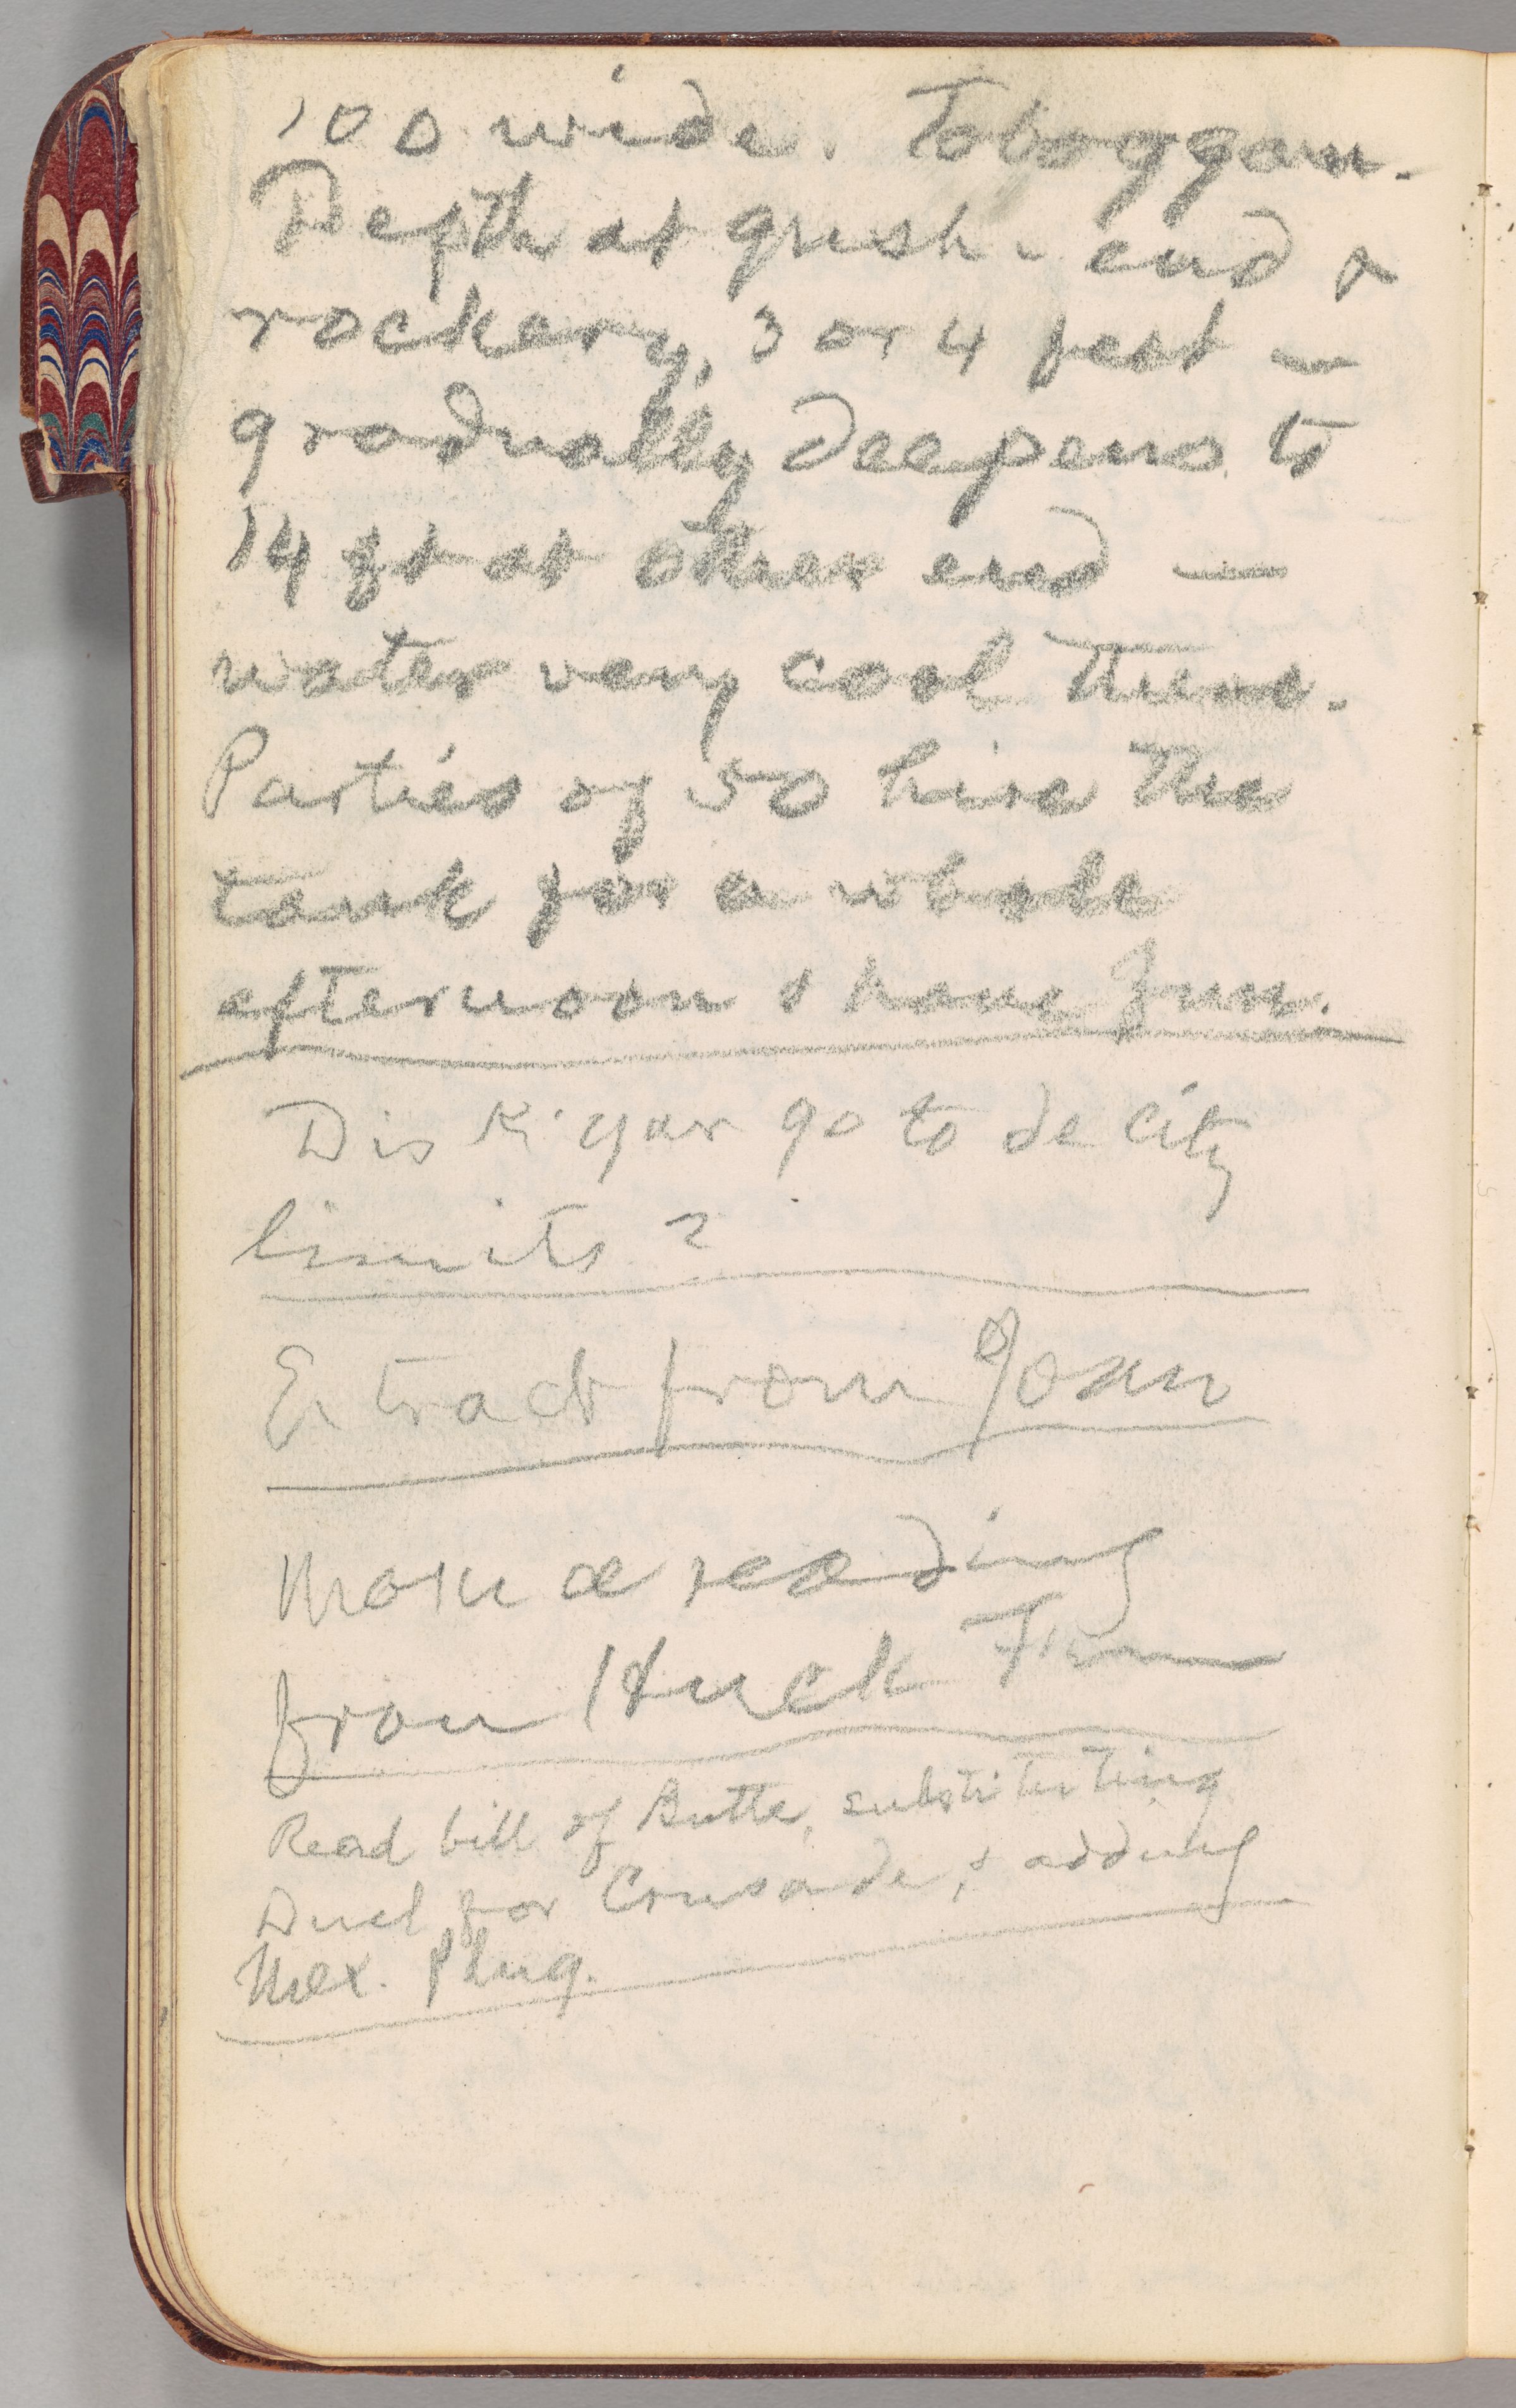 100 wide. Toboggan.
Depth at gush-end &
rockery, 3 or 4 feet —
gradually deepens to
14 ft at other end —
water very cool there.
Parties of 50 hire the
tank for a whole
afternoon & have fun.
Dis k'yar go to de city
limits?
Extract from Joan
Make a reading
from Huck Finn
Read bill of Butte, substituting
Duel for Crusade, & adding
Mex. Plug.